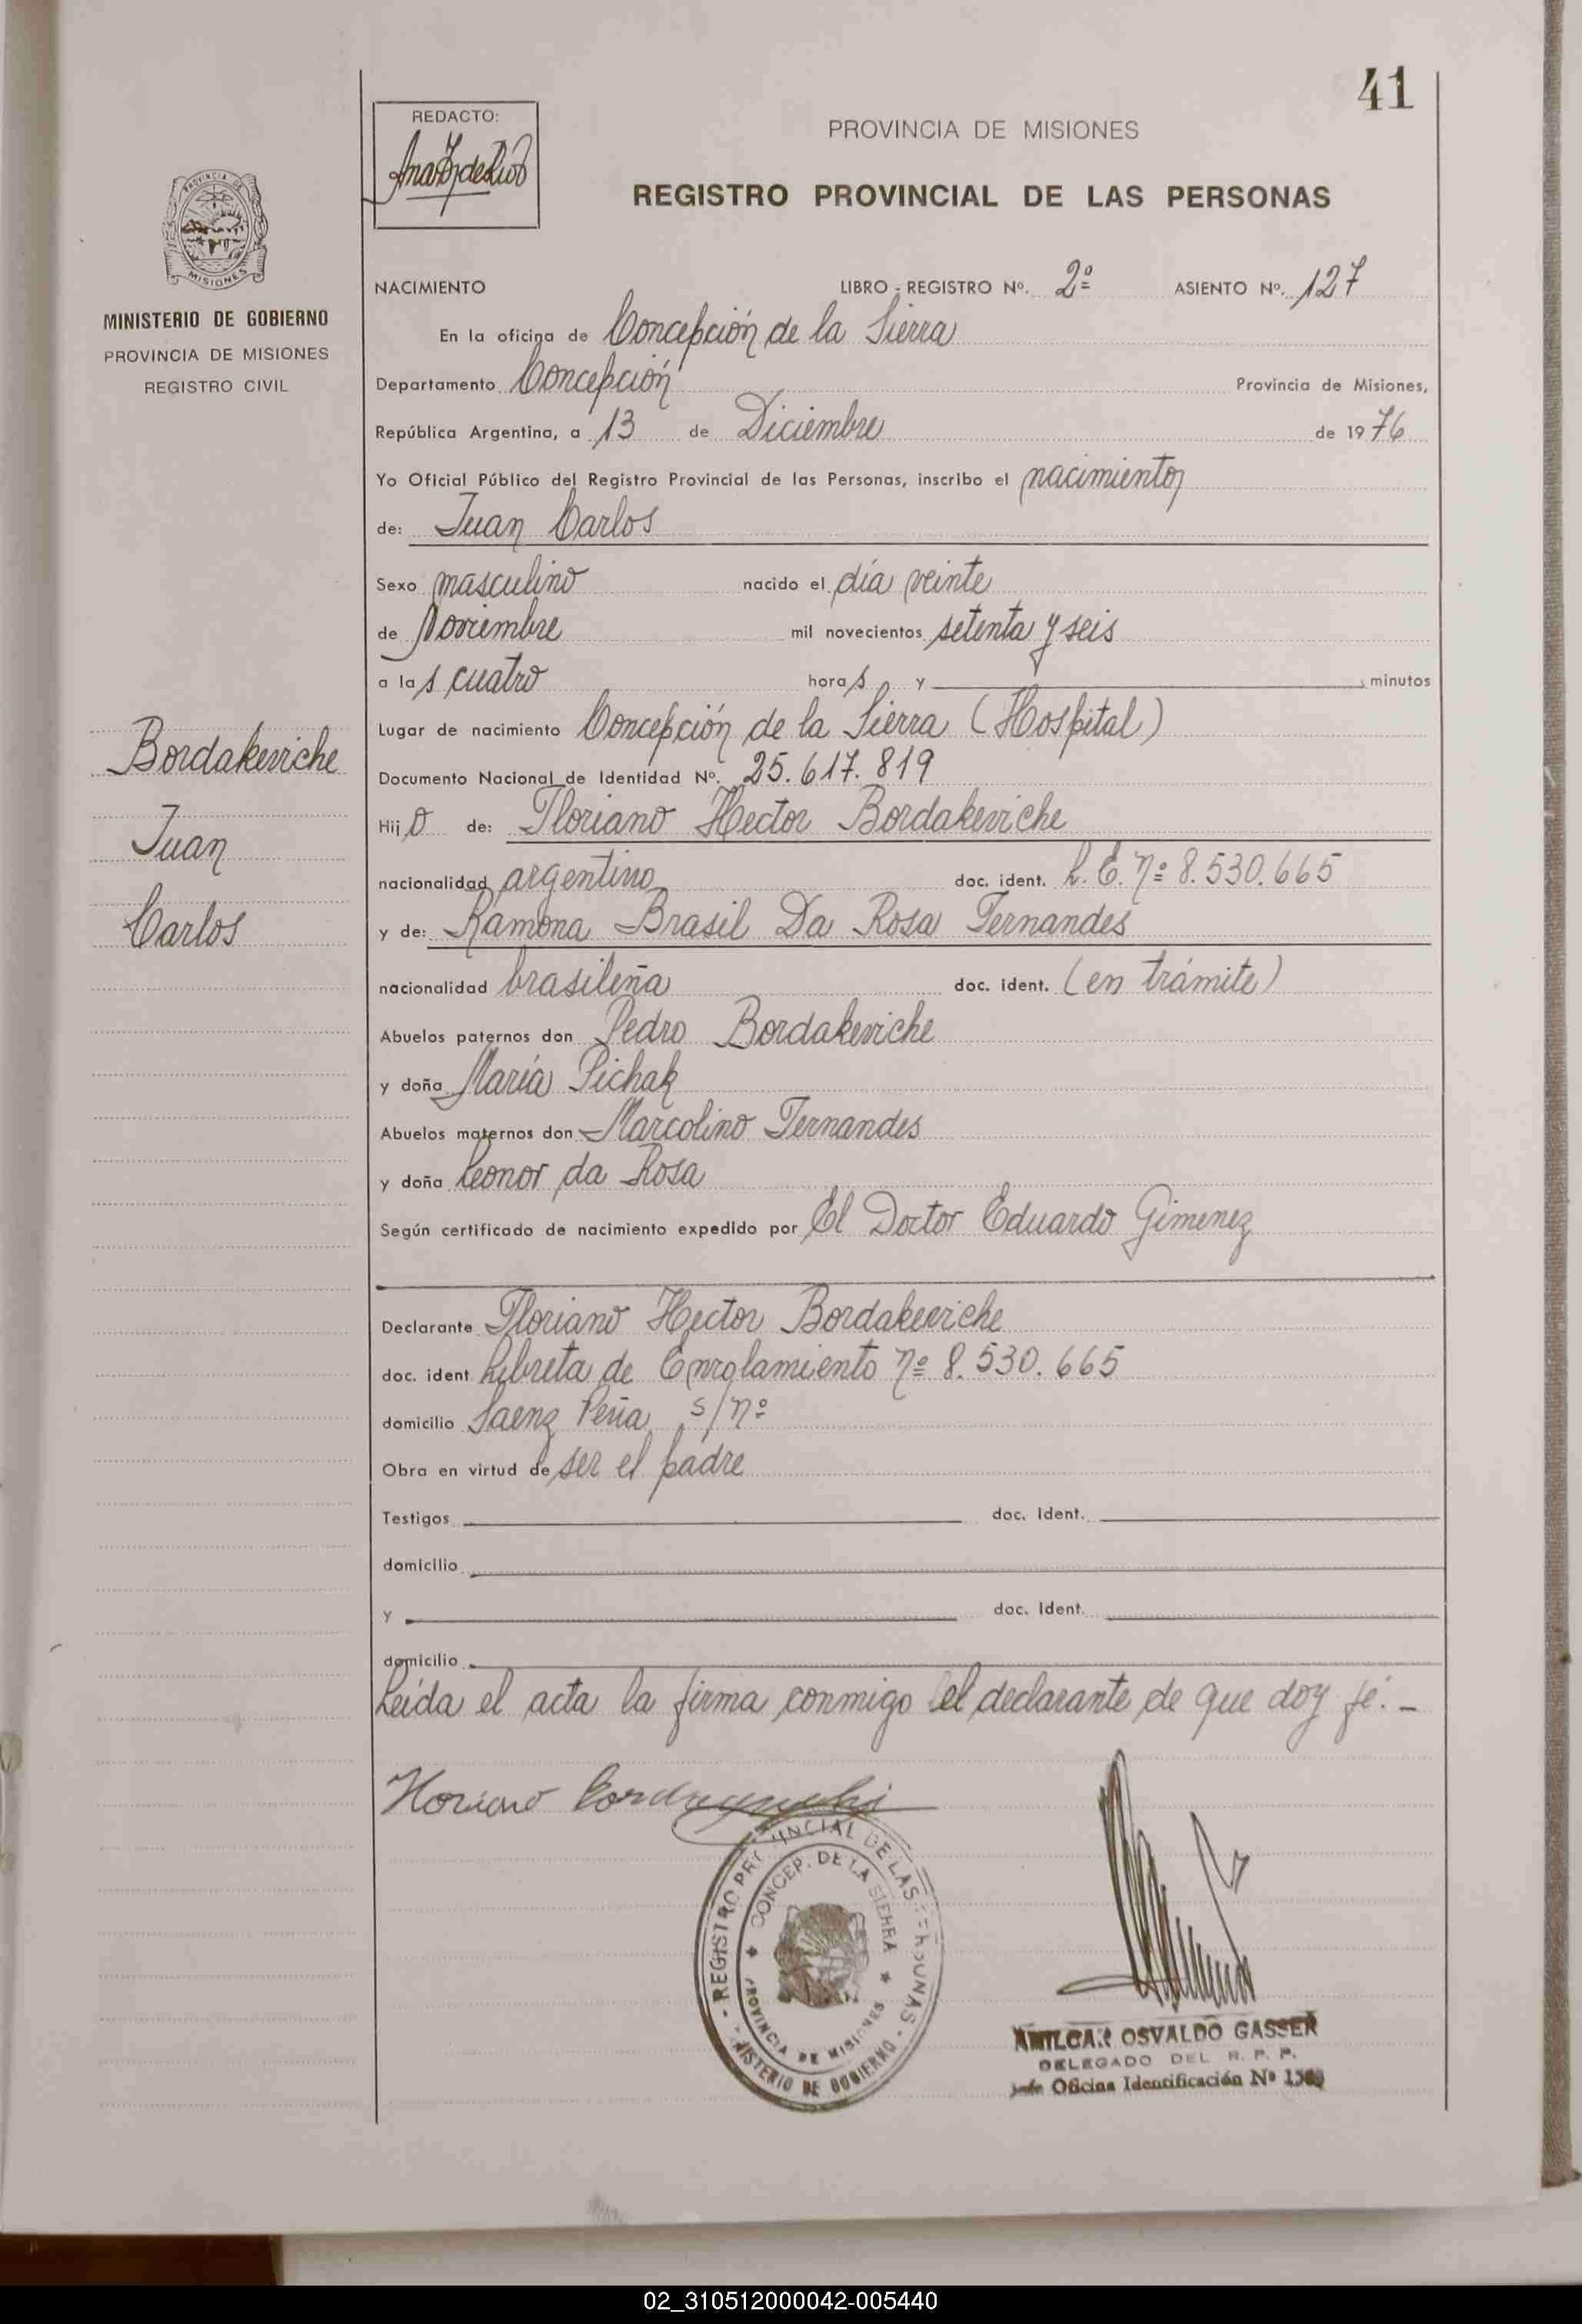 41
REDACTO:
PROVINCIA DE MISIONES
REGISTRO PROVINCIAL DE LAS PERSONAS
PROVINCIA DE
MISIONES
MINISTERIO DE GOBIERNO
PROVINCIA DE MISIONES
REGISTRO CIVIL
NACIMIENTO LIBRO - REGISTRO Nº. 2º ASIENTO Nº. 127
En la oficina de Concepción de la Sierra
Departamento Concepción Provincia de Misiones,
República Argentina, a 13 de Diciembre de 1976
Yo Oficial Público del Registro Provincial de las Personas, inscribo el nacimiento
de: Juan Carlos
Sexo masculino nacido el día veinte
de Noviembre mil novecientos setenta y seis
a las cuatro horas y minutos
Lugar de nacimiento Concepción de la Sierra (Hospital)
Documento Nacional de Identidad Nº. 25.617.819
Hijo de: Floriano Hector Bordakeviche
nacionalidad argentino doc. ident. L.E. nº 8.530.665
y de: Ramona Brasil Da Rosa Fernandes
nacionalidad brasileña doc. ident. (en trámite)
Abuelos paternos don Pedro Bordakeviche
y doña María Pichak
Abuelos maternos don Marcolino Fernandes
y doña Leonor da Rosa
Según certificado de nacimiento expedido por El Doctor Eduardo Gimenez
Declarante Floriano Hector Bordakeviche
doc. ident. Libreta de Enrolamiento nº 8.530.665
domicilio Saenz Peña s/nº
Obra en virtud de ser el padre
Testigos doc. ident.
domicilio
y doc. ident.
domicilio
Leída el acta la firma conmigo el declarante de que doy fé.-
Bordakeviche
Juan
Carlos
REGISTRO PROVINCIAL DE LAS PERSONAS
CONCEP. DE LA SIERRA
PROVINCIA DE MISIONES
MINISTERIO DE GOBIERNO
AMILCAR OSVALDO GASSER
DELEGADO DEL R. P. P.
Jefe Oficina Identificación Nº
02_310512000042-005440